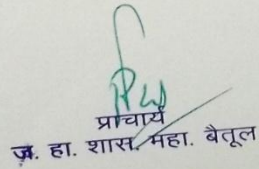 प्राचार्य
ज. हा. शास. महा. बैतूल